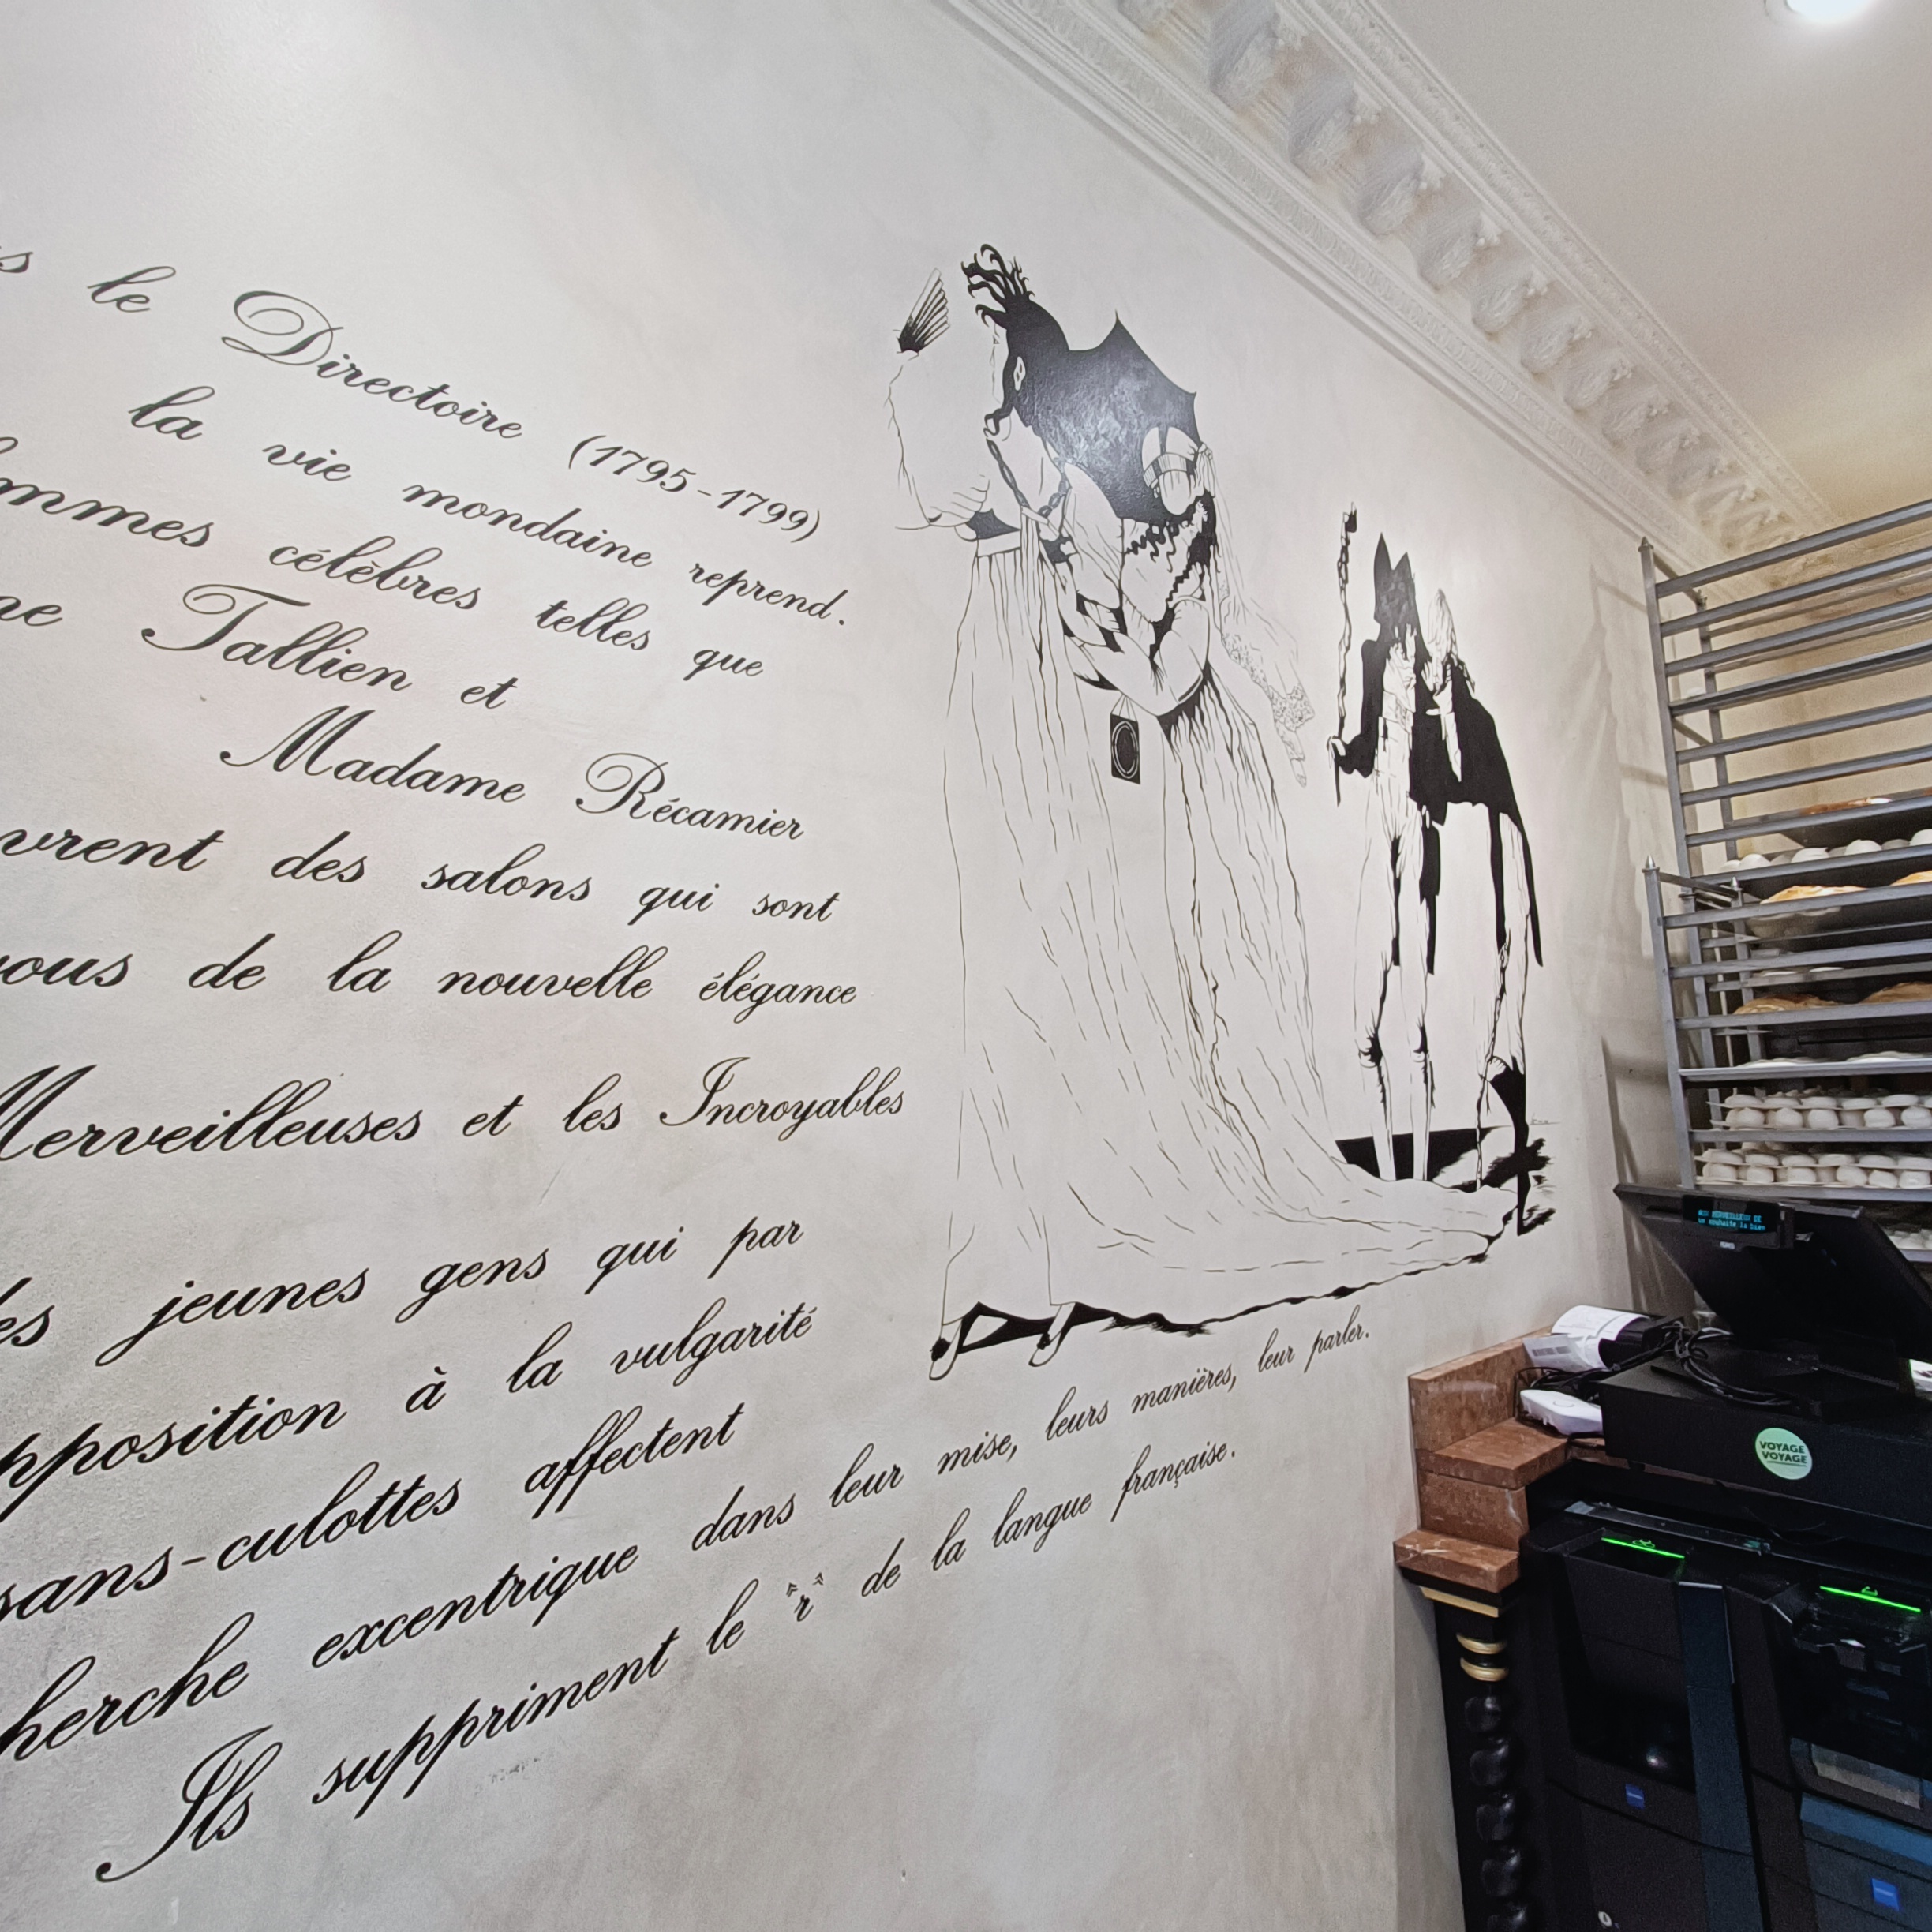 le Directoire (1795-1799)
la vie mondaine reprend.
célèbres telles que
Tallien et
Madame Récamier
des salons qui sont
de la nouvelle élégance
Merveilleuses et les Incroyables
jeunes gens qui par
à la vulgarité
sans-culottes affectent
excentrique dans leur mise, leurs manières, leur parler.
Ils suppriment le "r" de la langue française.
VOYAGE
VOYAGE